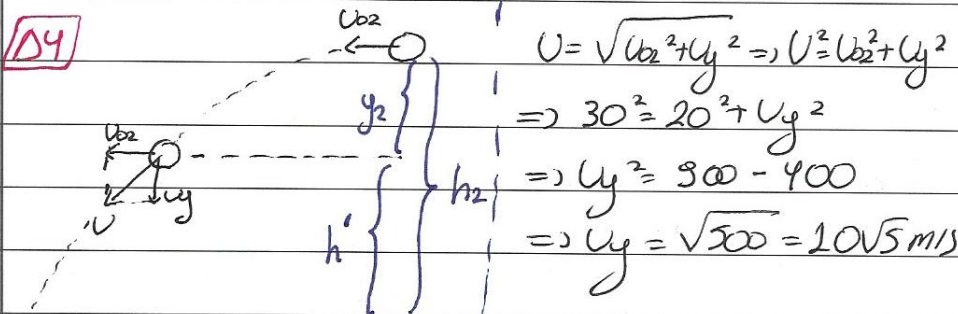 Δ4
U02
y2
h2
h'
U02
Uy
U
U = √U02²+Uy² => U² = U02²+Uy²
=> 30² = 20² + Uy²
=> Uy² = 900 - 400
=> Uy = √500 = 10√5 m/s